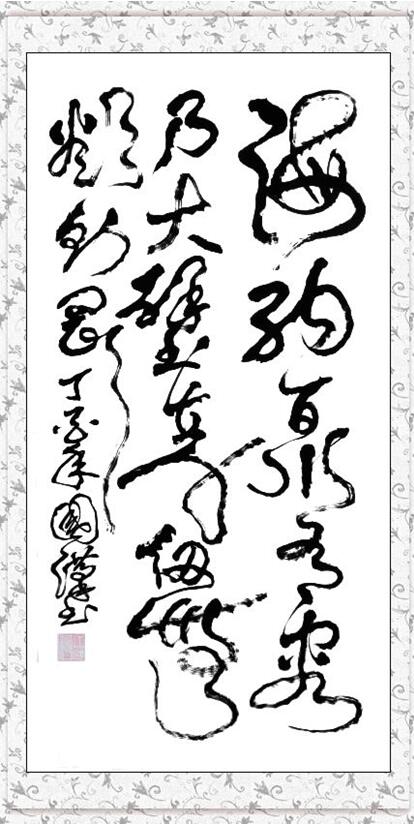 海納百川有容
乃大壁立千仞無
欲則剛丁亥年國書